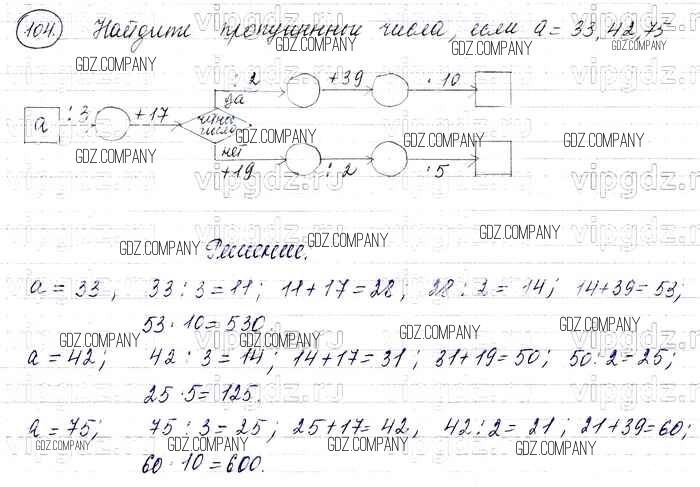 104. Найдите пропущенные числа, если a = 33, 42, 75
GDZ.COMPANY GDZ.COMPANY GDZ.COMPANY
: 2 +39 · 10
да
a : 3 +17 четное число
GDZ.COMPANY GDZ.COMPANY GDZ.COMPANY GDZ.COMPANY
нет
+19 : 2 · 5
vipgdz.ru vipgdz.ru
GDZ.COMPANY GDZ.COMPANY GDZ.COMPANY
Решение.
a = 33, 33 : 3 = 11; 11 + 17 = 28; 28 : 2 = 14; 14 + 39 = 53;
GDZ.COMPANY GDZ.COMPANY GDZ.COMPANY GDZ.COMPANY
53 · 10 = 530
GDZ.COMPANY GDZ.COMPANY GDZ.COMPANY
a = 42; 42 : 3 = 14; 14 + 17 = 31; 31 + 19 = 50; 50 : 2 = 25;
25 · 5 = 125.
a = 75; 75 : 3 = 25; 25 + 17 = 42, 42 : 2 = 21; 21 + 39 = 60;
GDZ.COMPANY GDZ.COMPANY GDZ.COMPANY GDZ.COMPANY GDZ.COMPANY
60 · 10 = 600.